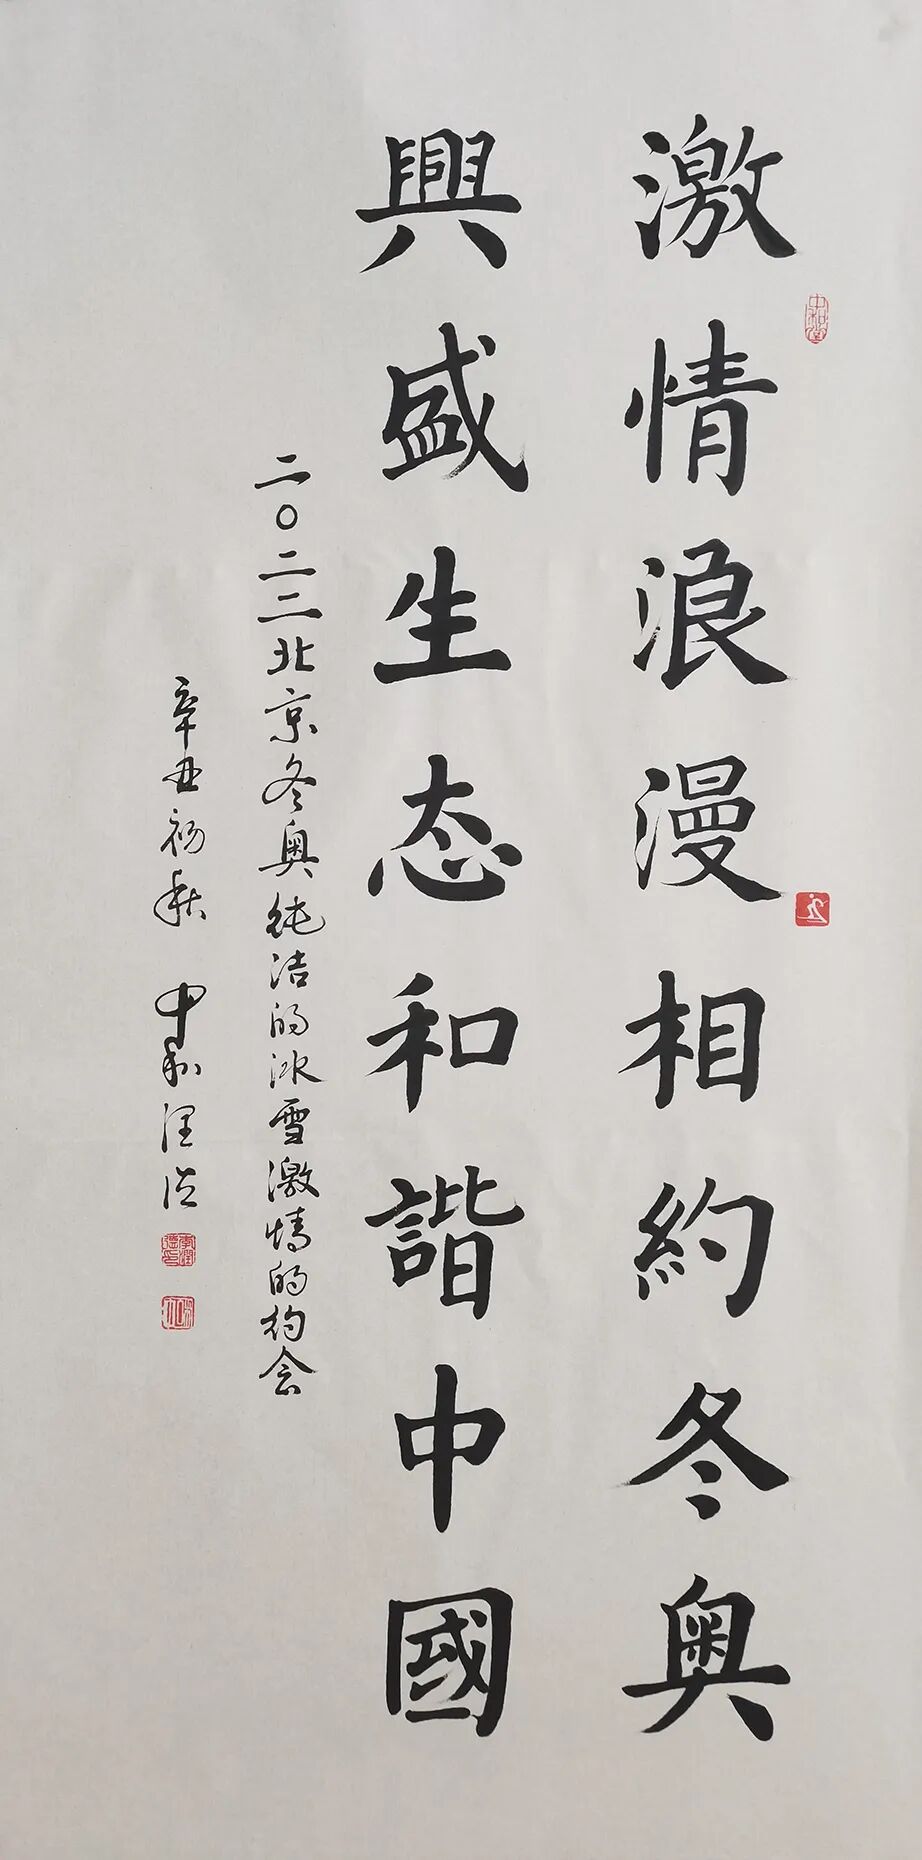 激情浪漫相約冬奥
興盛生态和諧中國
二〇二二北京冬奥纯洁的冰雪激情的约会
辛丑初秋 中和
中和堂